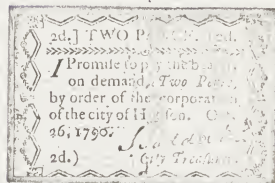 2d.] TWO P 2d.
I Promise to pay the
on demand, Two
by order of the corporation
of the city of H
26, 1790.
2d.) City Treasurer